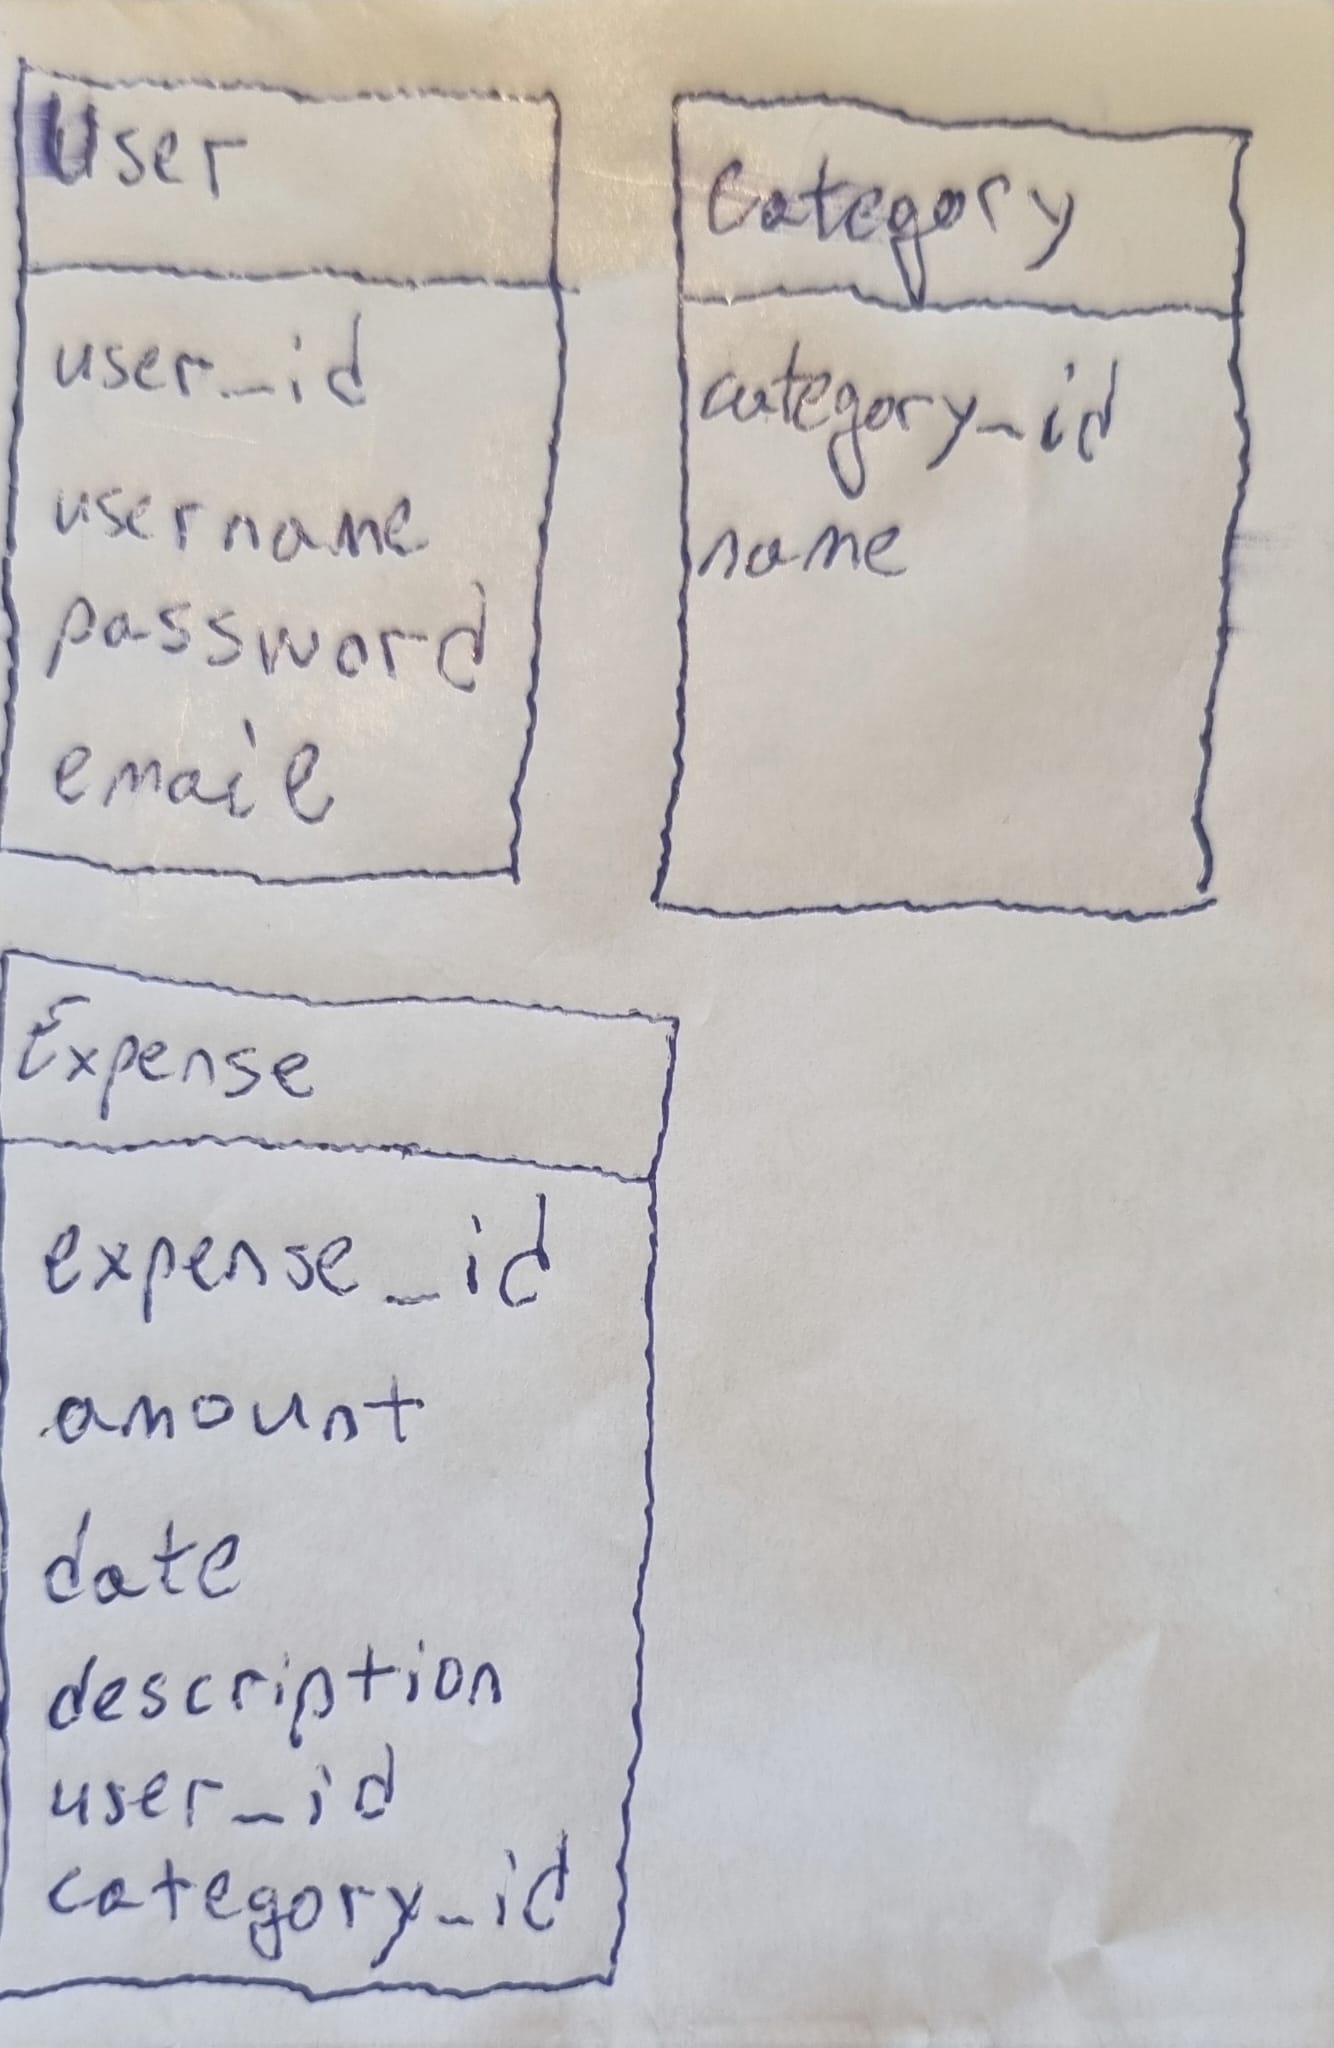 User
user_id
username
password
email
Category
category_id
name
Expense
expense_id
amount
date
description
user_id
category_id